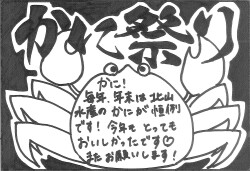 かに祭り
かに！
毎年、年末は北山
水産のかにが恒例
です！今年もとっても
おいしかったです♡
またお願いします！